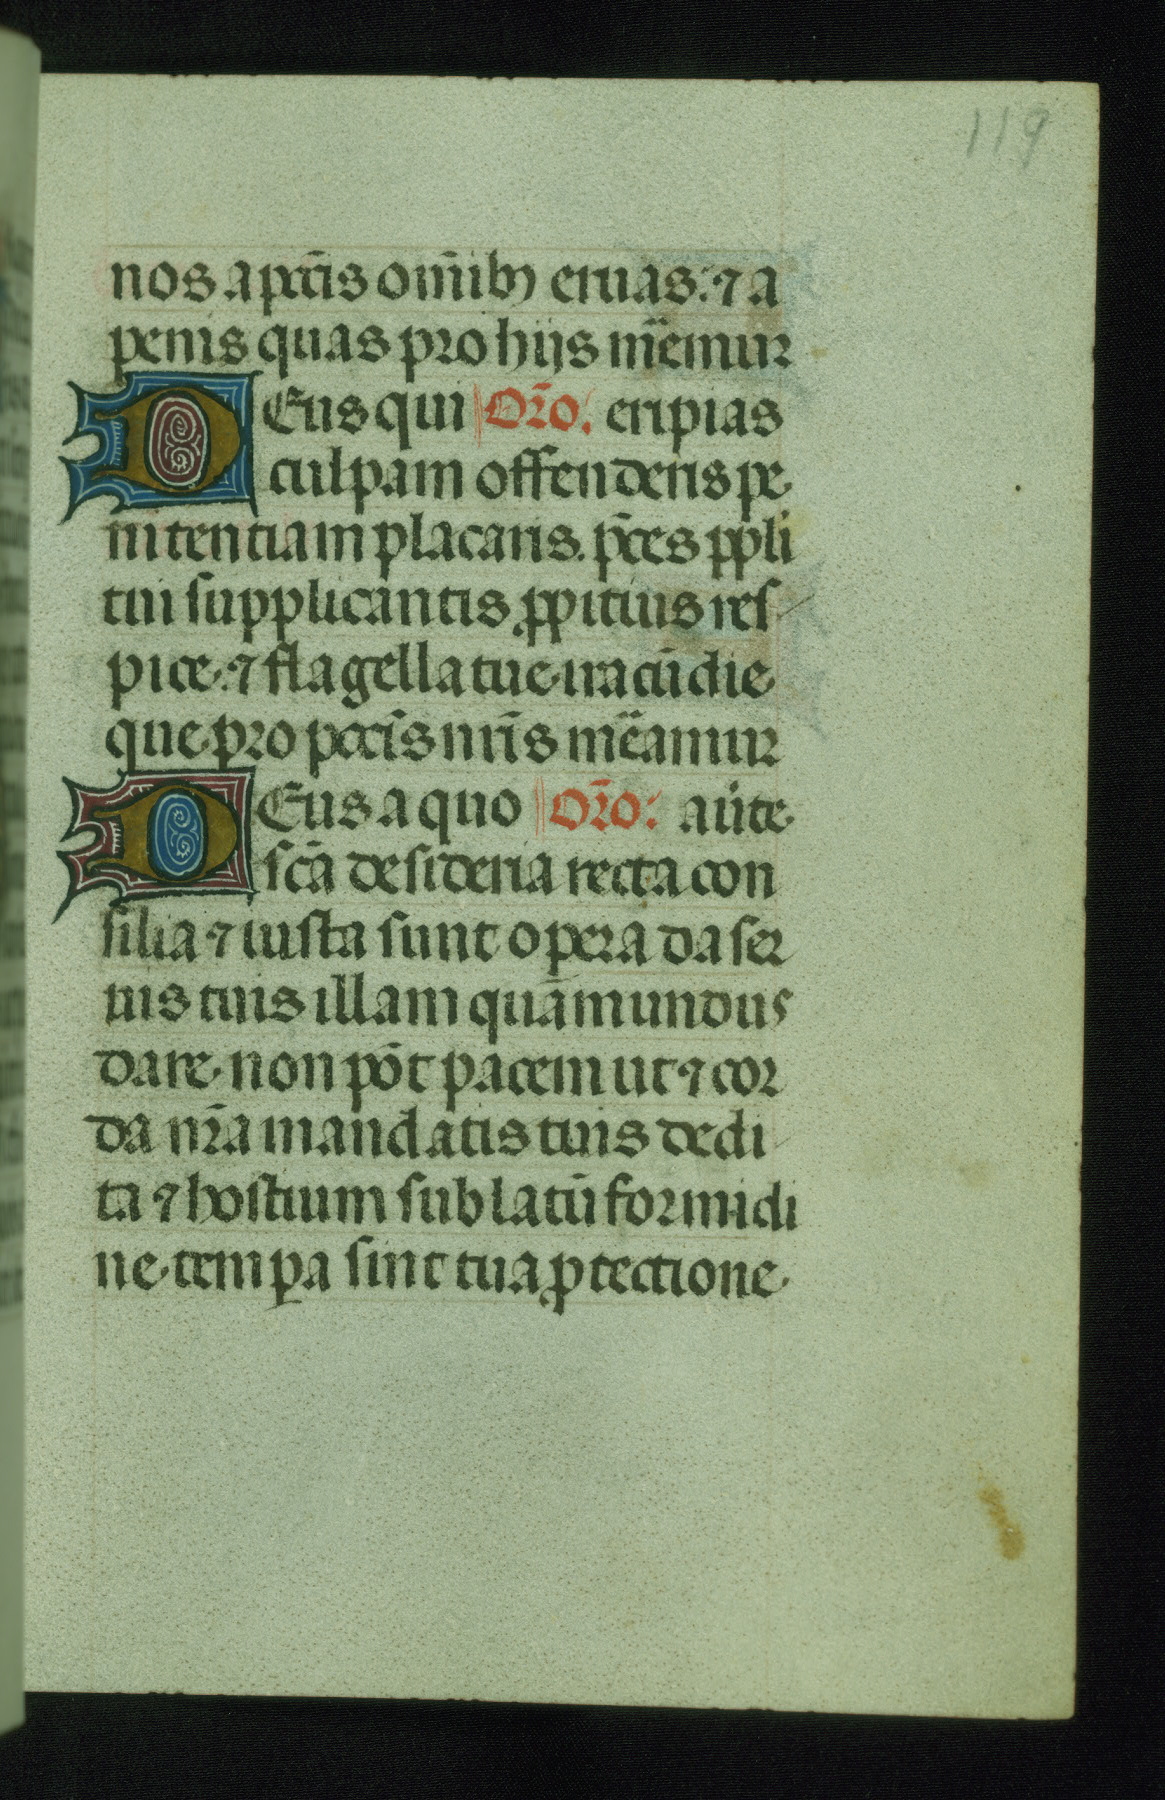 119
nos a pctīs om̄ibꝫ eruas: ⁊ a
penis quas pro hijs me᷑emur
DEus qui Or̄o. eripias
culpam offenderis pe
nitentiam placaris. p̄ces ppli
tui supplicantis ꝓpitius res
pice: ⁊ flagella tue iracūdie
que pro pctīs nrīs me᷑amur
DEus a quo Or̄o: aūte
scā desideria recta con
silia ⁊ iusta sunt opera da ser
uis tuis illam quā mundus
dare non pōt pacem ut ⁊ cor
da nr̄a mandatis tuis dedi
ta ⁊ hostium sublatū formidi
ne temꝑa sint tua ꝓtectione